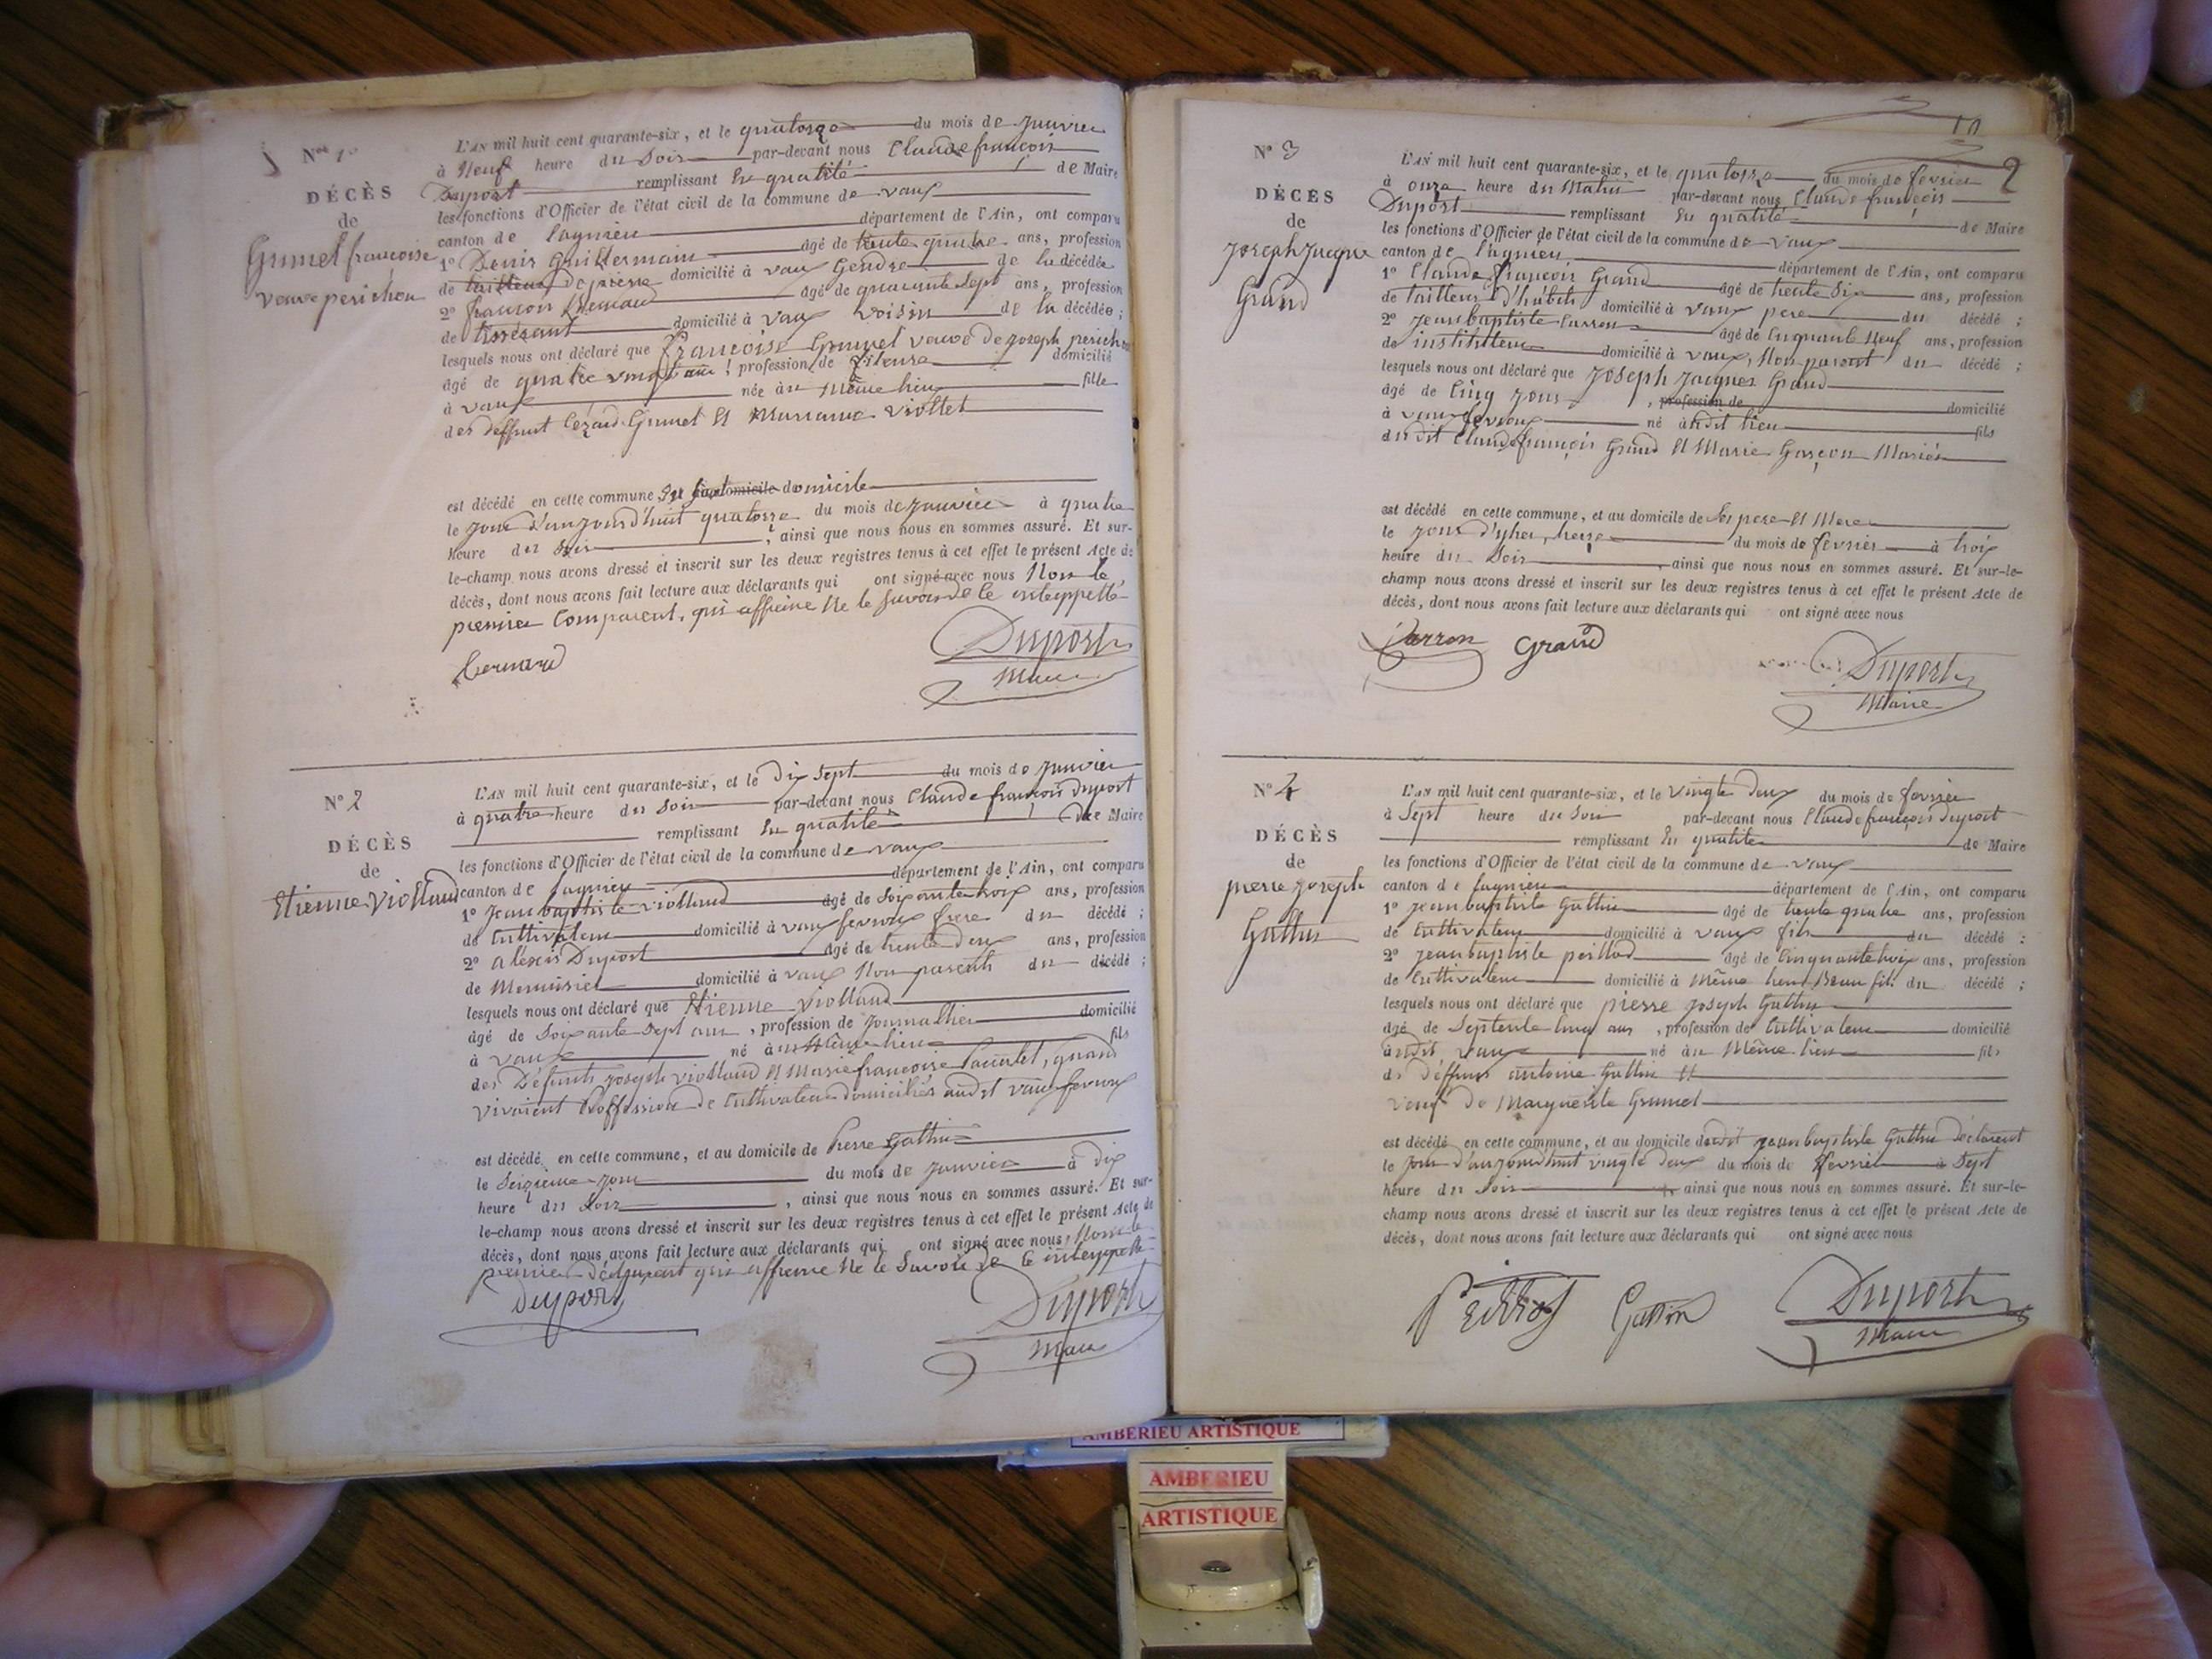 Nos 1er
DÉCÈS
de
Grumet françoise
veuve perichon
L'AN mil huit cent quarante-six, et le quatorze du mois de janvier
à Neuf heure du Soir par-devant nous Claude françois
Duport remplissant En qualité de Maire
les fonctions d'Officier de l'état civil de la commune de vaux
canton de Lagnieu département de l'Ain, ont comparu
1º Denis Guillermain âgé de trente quatre ans, profession
de tailleur de pierre domicilié à vaux Gendre de la décédée
2º françois Bernard âgé de quarante sept ans, profession
de tisserant domicilié à vaux voisin de la décédée ;
lesquels nous ont déclaré que françoise Grumet veuve de joseph perichon
âgé de quatre vingt ans, profession de fileuse domicilié
à vaux née au Même lieu fille
des deffunt Cezard Grumet Et Marianne viollet
est décédé en cette commune domicile
le jour d'aujourd'huit quatorze du mois de janvier à quatre
heure du Soir , ainsi que nous nous en sommes assuré. Et sur-
le-champ nous avons dressé et inscrit sur les deux registres tenus à cet effet le présent Acte de
décès, dont nous avons fait lecture aux déclarants qui ont signé avec nous Non le
premier Comparent, qui affirme Ne le Savoir de ce interppellé
Bernard
Duport
Maire
Nº 2
DÉCÈS
de
Etienne Violland
L'AN mil huit cent quarante-six, et le Dix Sept du mois de janvier
à quatre heure du Soir par-devant nous Claude françois Duport
remplissant En qualité de Maire
les fonctions d'Officier de l'état civil de la commune de vaux
canton de Lagnieu département de l'Ain, ont comparu
1º Jean baptiste violland âgé de Soixante trois ans, profession
de Cultivateur domicilié à vaux fevroux frere du décédé ;
2º alexis Duport âgé de trente deux ans, profession
de Menuisier domicilié à vaux Non parents du décédé ;
lesquels nous ont déclaré que Etienne Violland
âgé de Soixante Sept ans, profession de journallier domicilié
à vaux né au Même lieu fils
des Défunts joseph viollaud Et Marie francoise, quand
vivaient Proffession de Cultivateur domiciliés audit vaux fevroux
est décédé en cette commune, et au domicile de Pierre Gathier
le Seizieme jour du mois de janvier à dix
heure du Soir , ainsi que nous nous en sommes assuré. Et sur-
le-champ nous avons dressé et inscrit sur les deux registres tenus à cet effet le présent Acte de
décès, dont nous avons fait lecture aux déclarants qui ont signé avec nous, Non le
premier Déclarent qui affirme Ne le Savoir de ce interppellé
Duport
Duport
Maire
10
2
Nº 3
DÉCÈS
de
joseph jacque
Grand
L'AN mil huit cent quarante-six, et le quatorze du mois de fevrier
à onze heure du Matin par-devant nous Claude françois
Duport remplissant En qualité de Maire
les fonctions d'Officier de l'état civil de la commune de vaux
canton de Lagnieu département de l'Ain, ont comparu
1º Claude françois Grand âgé de trente Six ans, profession
de tailleur d'habits domicilié à vaux pere du décédé ;
2º jean baptiste Carron âgé de Cinquante Neuf ans, profession
de instituteur domicilié à vaux, Non parent du décédé ;
lesquels nous ont déclaré que joseph jacques Grand
âgé de Cinq jours , profession de domicilié
à vaux fevroux né audit lieu fils
du dit Claude françois Grand Et Marie Garçon Mariés
est décédé en cette commune, et au domicile de Ses pere Et Mere
le jour d'yher, treize du mois de fevrier à trois
heure du Soir , ainsi que nous nous en sommes assuré. Et sur-le-
champ nous avons dressé et inscrit sur les deux registres tenus à cet effet le présent Acte de
décès, dont nous avons fait lecture aux déclarants qui ont signé avec nous
Carron Grand
Duport
Maire
Nº 4
DÉCÈS
de
pierre joseph
Gathier
L'AN mil huit cent quarante-six, et le vingte deux du mois de fevrier
à Sept heure du Soir par-devant nous Claude françois Duport
remplissant En qualité de Maire
les fonctions d'Officier de l'état civil de la commune de vaux
canton de Lagnieu département de l'Ain, ont comparu
1º jean baptiste Gathier âgé de trente quatre ans, profession
de Cultivateur domicilié à vaux fils du décédé ;
2º jean baptiste peillod âgé de Cinquante trois ans, profession
de Cultivateur domicilié à Même lieu Beau fils du décédé ;
lesquels nous ont déclaré que pierre joseph Gathier
âgé de Septente Cinq ans , profession de Cultivateur domicilié
audit vaux né au Même lieu fils
de deffunt antoine Gathier Et
veuf de Marguerite Grumet
est décédé en cette commune, et au domicile dudit jean baptiste Gathier declarent
le jour d'aujourd'huit vingte deux du mois de fevrier à Sept
heure du Soir , ainsi que nous nous en sommes assuré. Et sur-le-
champ nous avons dressé et inscrit sur les deux registres tenus à cet effet le présent Acte de
décès, dont nous avons fait lecture aux déclarants qui ont signé avec nous
Peillod Gathier
Duport
Maire
AMBERIEU ARTISTIQUE
AMBERIEU
ARTISTIQUE